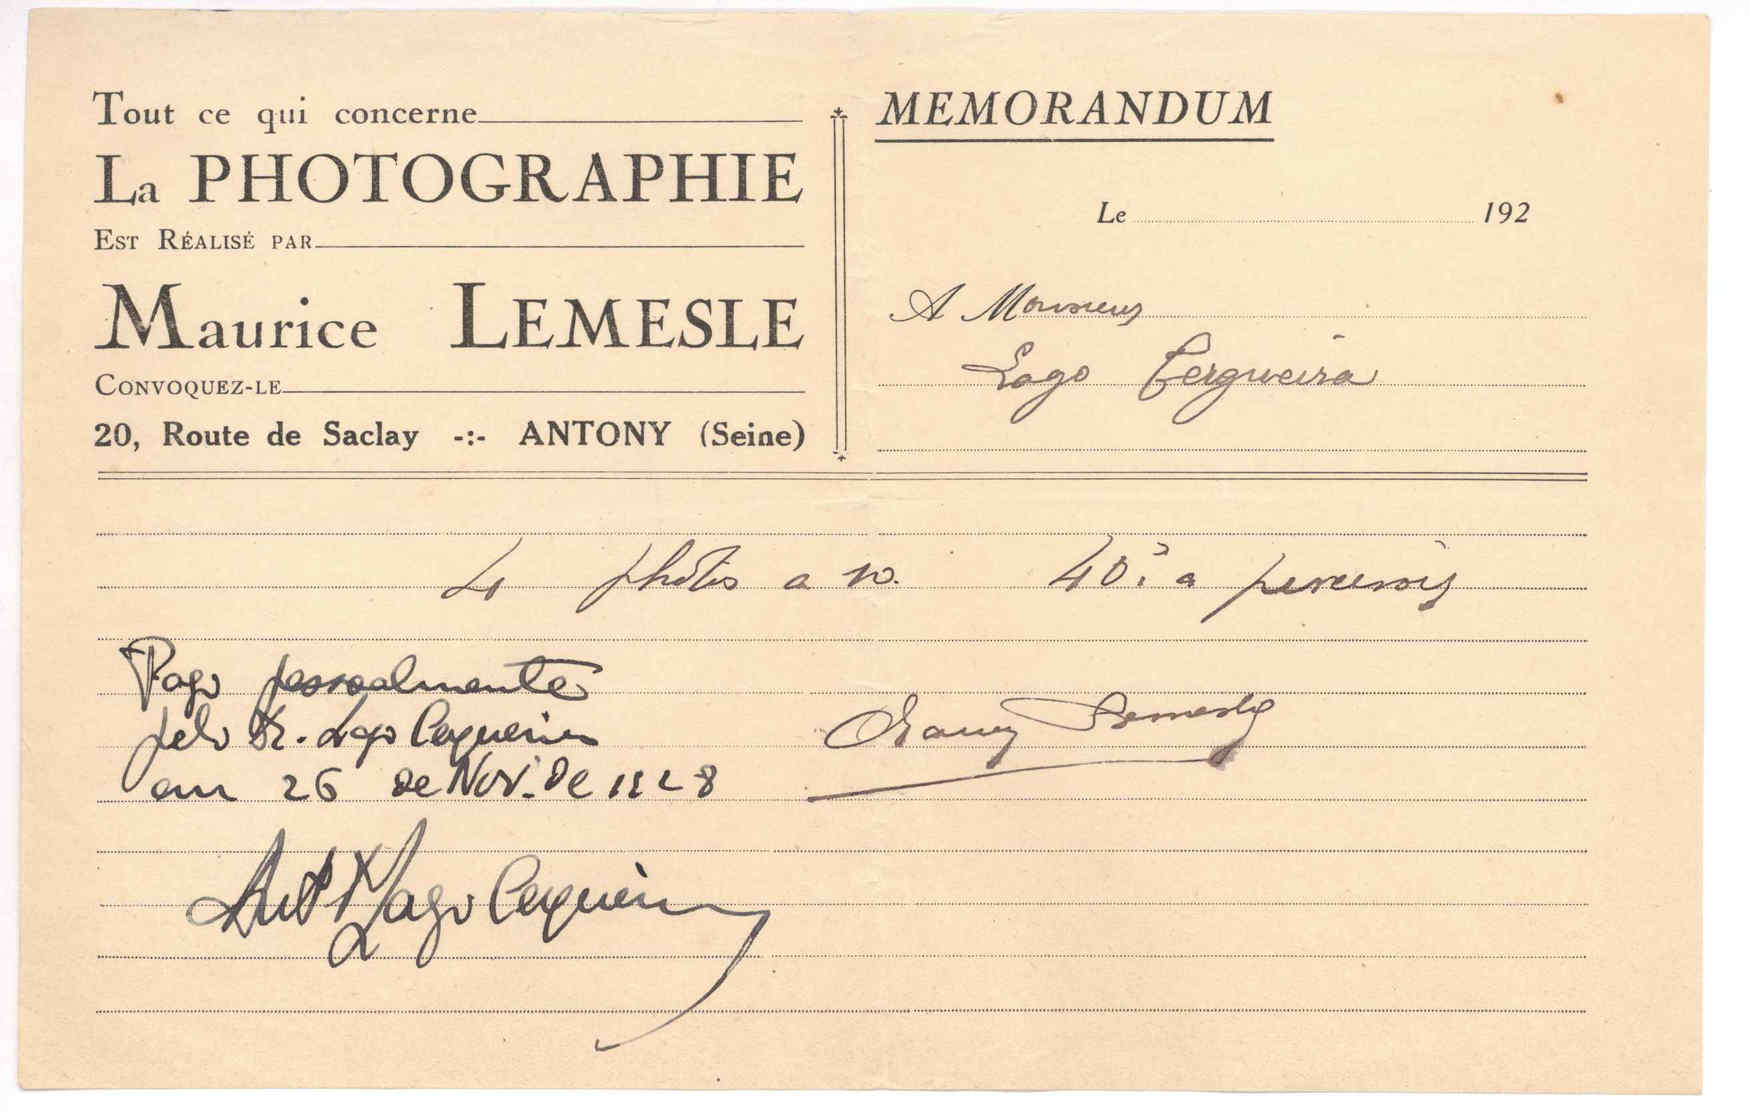 Tout ce qui concerne
La PHOTOGRAPHIE
EST RÉALISÉ PAR
Maurice LEMESLE
CONVOQUEZ-LE
20, Route de Saclay -:- ANTONY (Seine)
MEMORANDUM
Le 192
A Monsieur
Lago Cerqueira
4 photos a 10. 40. a percevoir
Pago pessoalmente
pelo Dr. Lago Cerqueira
em 26 de Nov. de 1928
Lemesle
Antº Lago Cerqueira